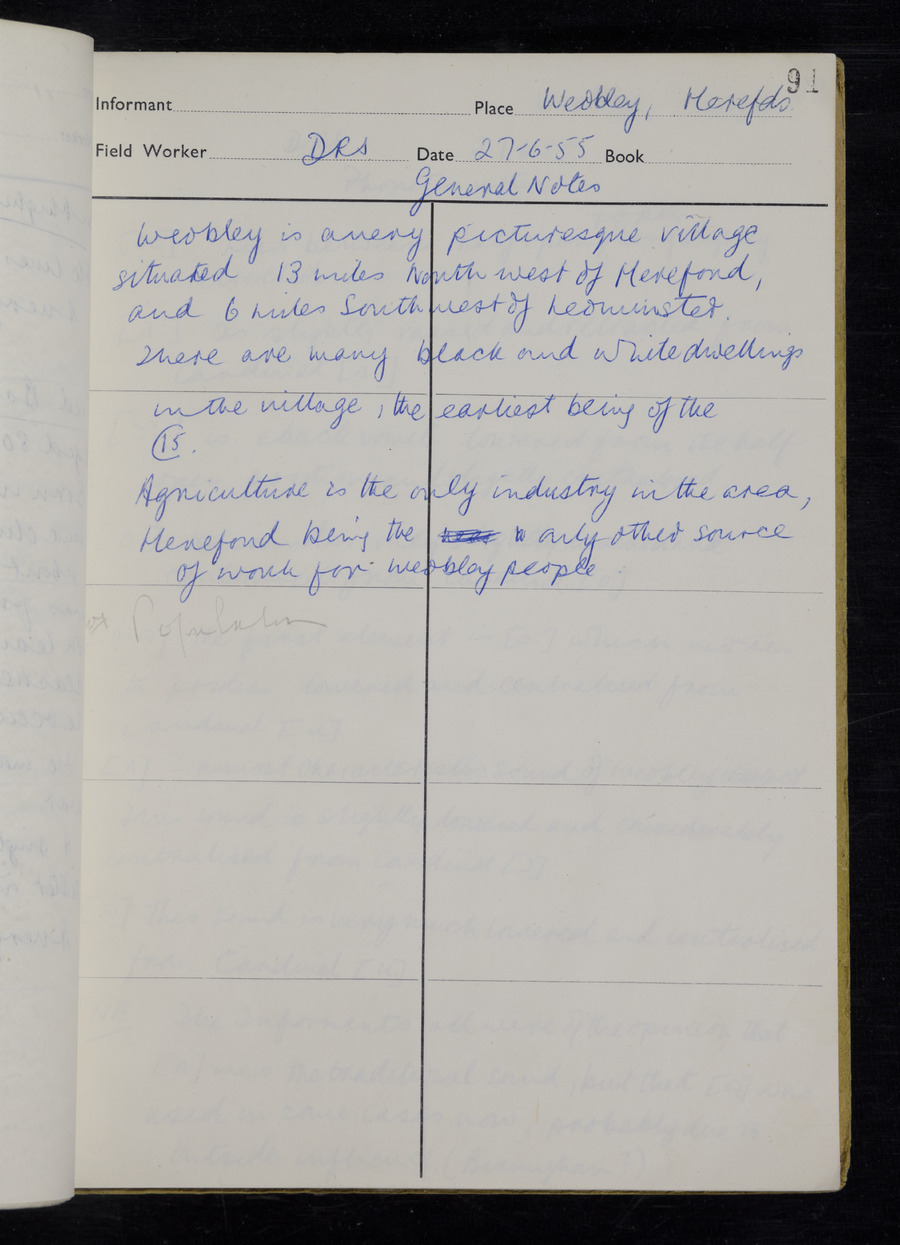 91
Informant Place Weobley, Herefds.
Field Worker DRS Date 27-6-55 Book
General Notes
Weobley is a very picturesque village
situated 13 miles North west of Hereford,
and 6 miles South west of Leominster.
There are many black and white dwellings
in the village, the earliest being of the
C15.
Agriculture is the only industry in the area,
Hereford being the only other source
of work for Weobley people.
Population